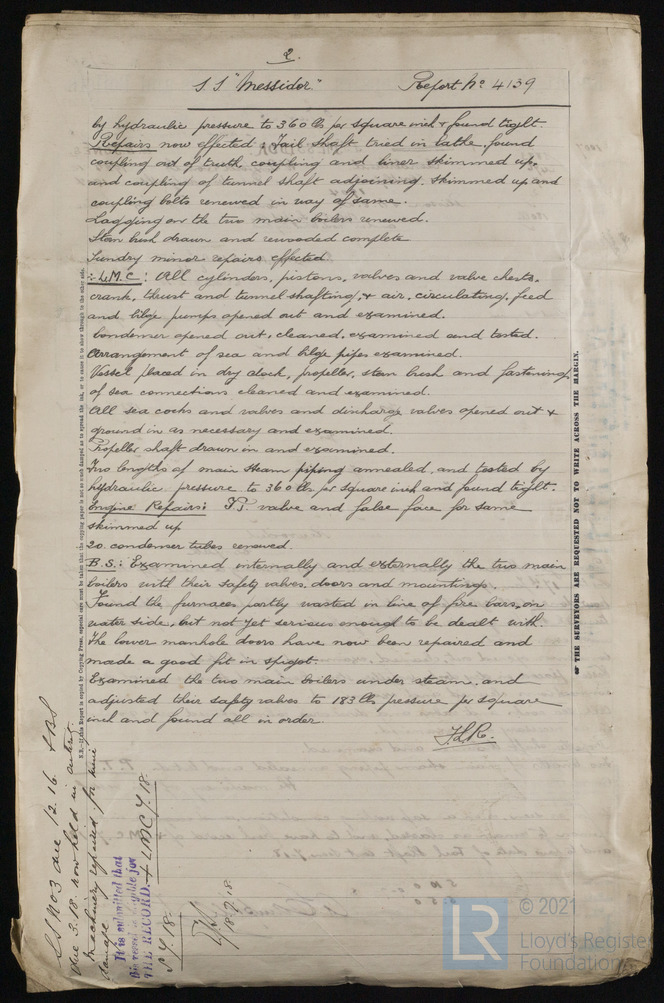 2.
S.S. "Messidor"
Report No 4139
by hydraulic pressure to 360 lbs per square inch & found tight.
Repairs now effected: Tail shaft tried in lathe, found
coupling out of truth, coupling and liner skimmed up,
and coupling of tunnel shaft adjoining, skimmed up and
coupling bolts renewed in way of same.
Lagging on the two main boilers renewed.
Stern bush drawn and rewooded complete
Sundry minor repairs effected
L.M.C: All cylinders, pistons, valves and valve chests,
crank, thrust and tunnel shafting, & air, circulating, feed
and bilge pumps opened out and examined.
Condenser opened out, cleaned, examined and tested.
Arrangement of sea and bilge pipes examined.
Vessel placed in dry dock, propeller, stern bush and fastenings
of sea connections cleaned and examined.
All sea cocks and valves and discharge valves opened out &
ground in as necessary and examined.
Propeller shaft drawn in and examined.
Two lengths of main steam piping annealed, and tested by
hydraulic pressure to 360 lbs per square inch and found tight.
Engine Repairs: valve and false face for same
skimmed up
20 condenser tubes renewed.
B.S.: Examined internally and externally the two main
boilers with their safety valves, doors and mountings.
Found the furnaces partly wasted in line of fire bars, on
water side, but not yet serious enough to be dealt with.
The lower manhole doors have now been repaired and
made a good fit in spigot.
Examined the two main boilers under steam, and
adjusted their safety valves to 183 lbs pressure per square
inch and found all in order.
N.B.—If this Report is copied by Copying Press, especial care must be taken that the copying paper is not so much damped as to spread the ink, or to cause it to show through to the other side.
THE SURVEYORS ARE REQUESTED NOT TO WRITE ACROSS THE MARGIN.
SS No 3 due 12.16 & BS
due 3.18 now held in
machinery repaired for
damage
It is submitted that
this vessel is eligible for
THE RECORD. + LMC 7.18.
18.9.18
LR
© 2021
Lloyd's Register
Foundation